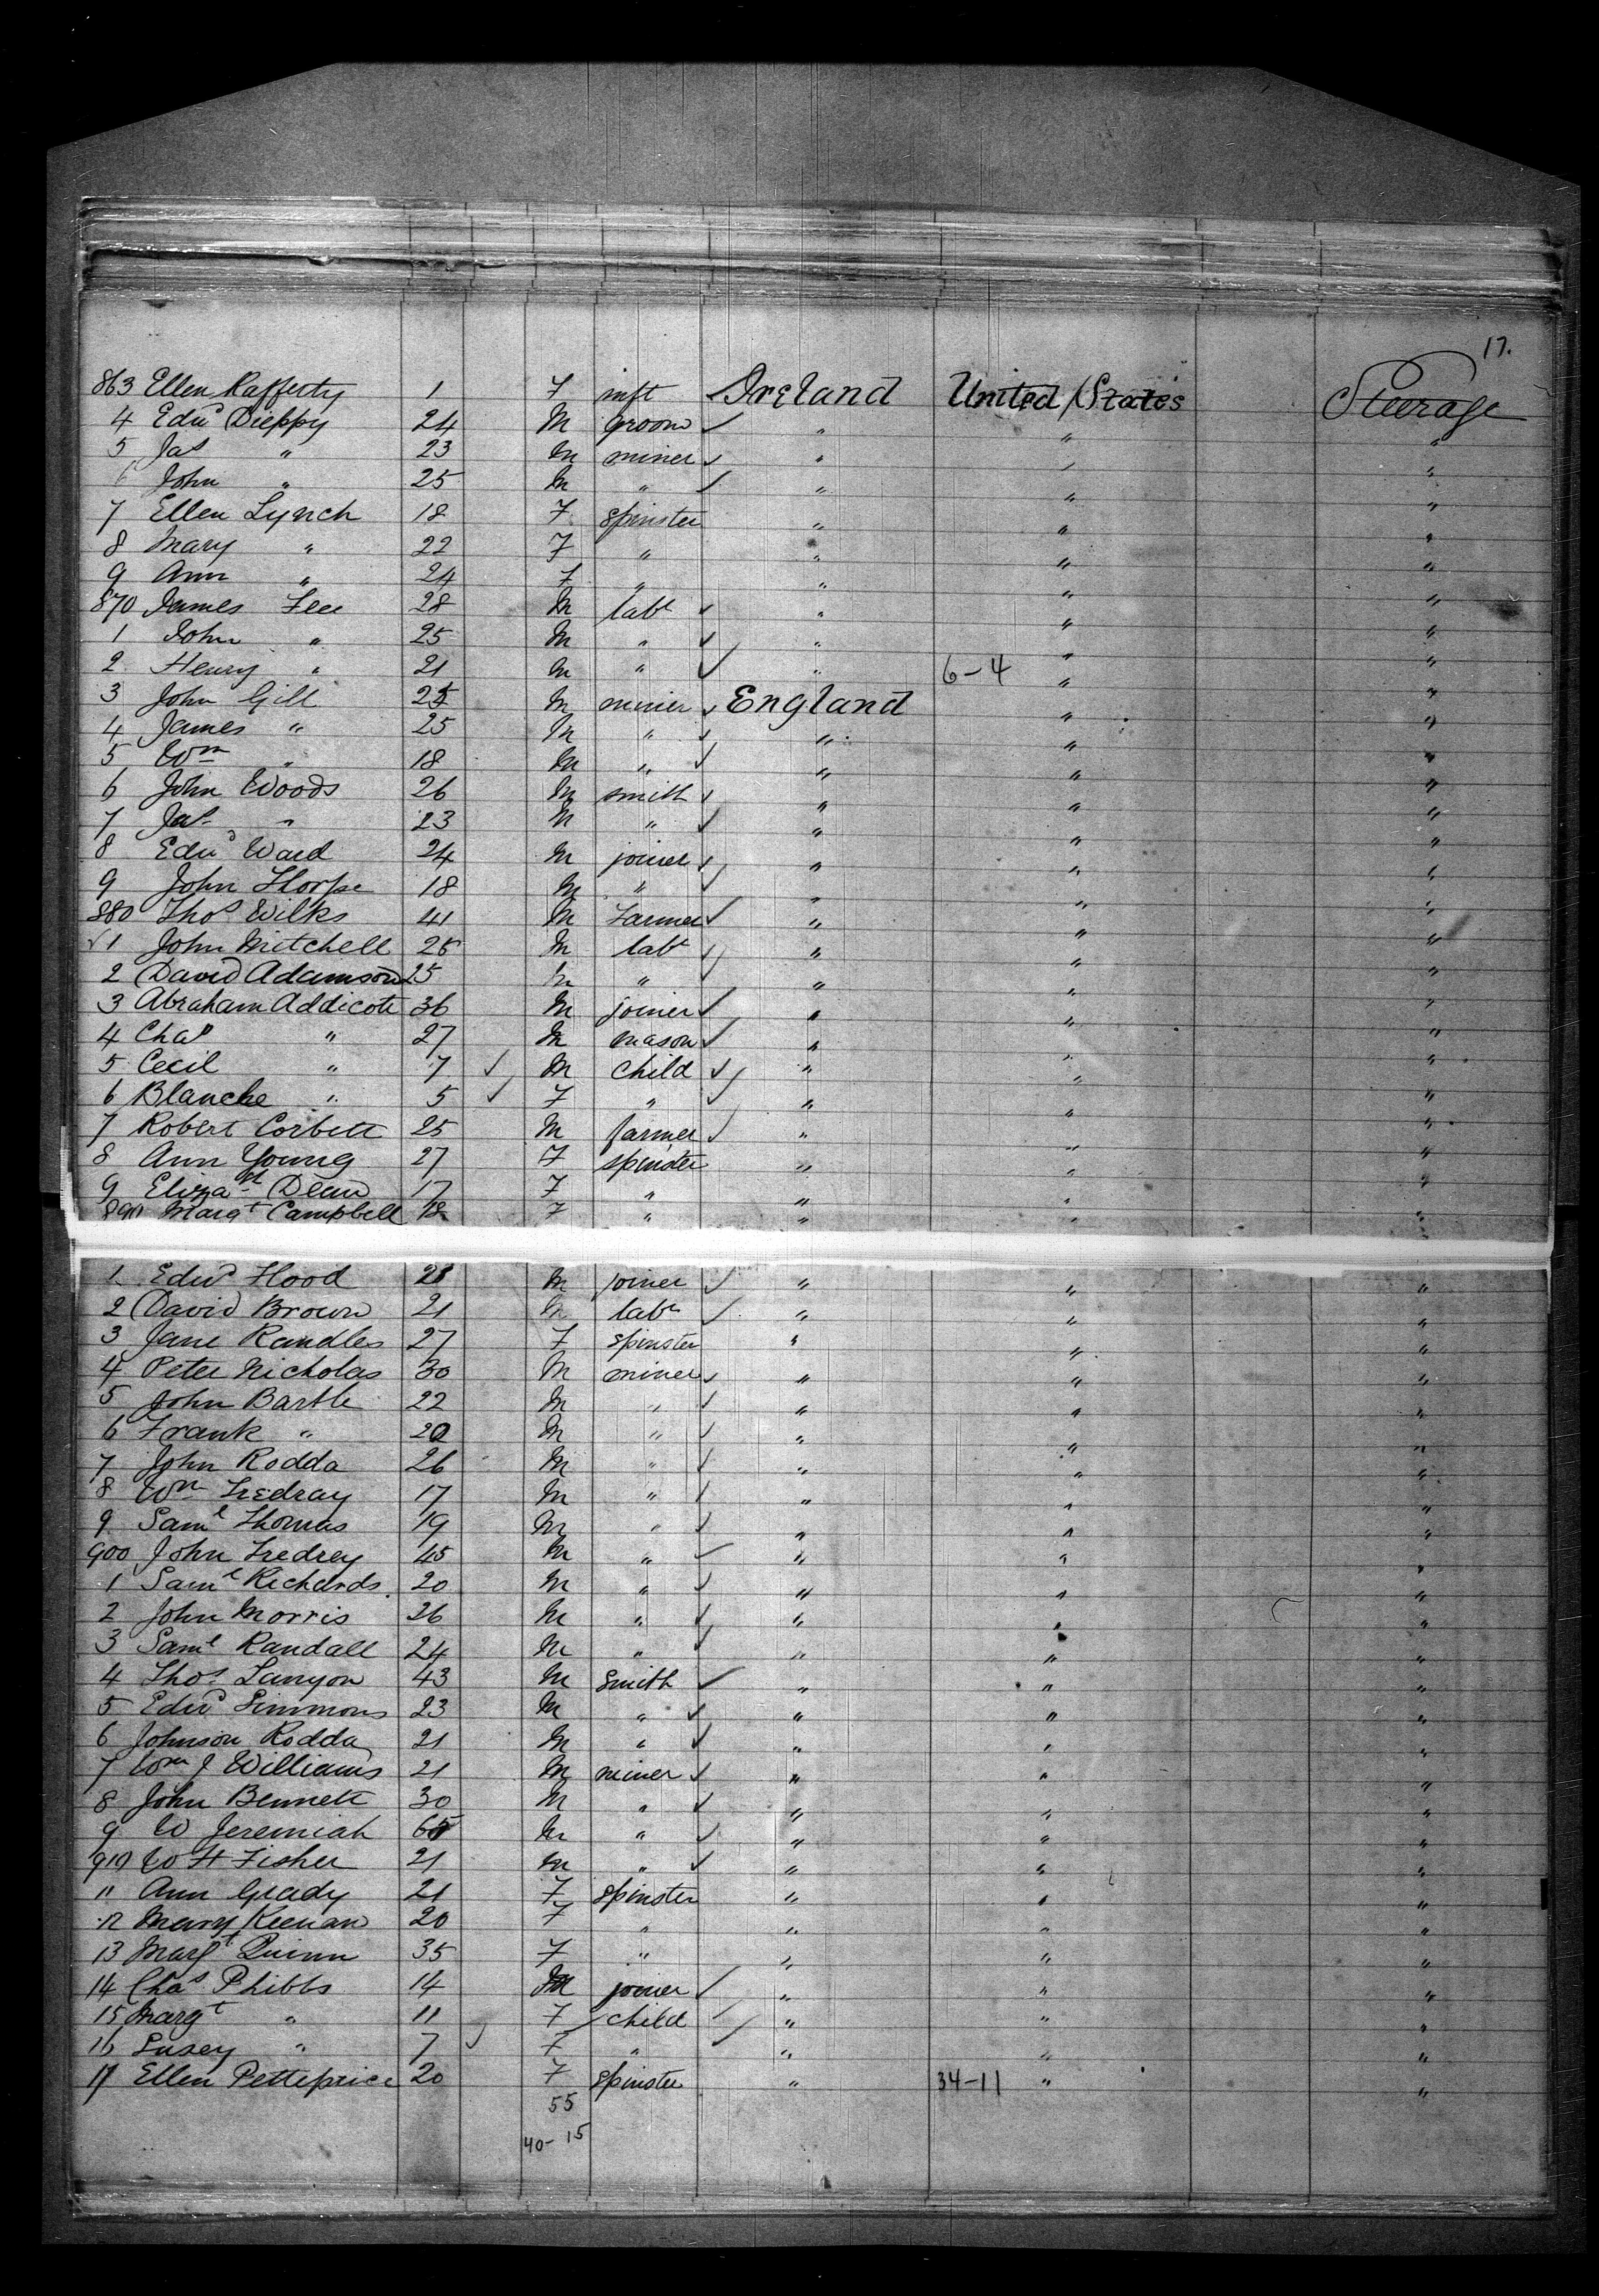 17.
863 Ellen Rafferty 1 F inft Ireland United States Steerage
4 Edwd Dieppy 24 M groom " " "
5 Jas " 23 M miner " " "
6 John " 25 M " " " "
7 Ellen Lynch 18 F spinster " " "
8 Mary " 22 F " " " "
9 Ann " 24 F " " " "
870 James Fee 28 M labr " " "
1 John " 25 M " " " "
2 Henry " 21 M " " 6-4 " "
3 John Gill 25 M miner England " "
4 James " 25 M " " " "
5 Wm " 18 M " " " "
6 John Woods 26 M smith " " "
7 Jas " 23 M " " " "
8 Edwd Ward 24 M joiner " " "
9 John Thorpe 18 M " " " "
880 Thos Wilks 41 M Farmer " " "
1 John Mitchell 25 M labr " " "
2 David Adamson 25 M " " " "
3 Abraham Addicott 36 M joiner " " "
4 Chas " 27 M mason " " "
5 Cecil " 7 M child " " "
6 Blanche " 5 F " " " "
7 Robert Corbett 25 M farmer " " "
8 Ann Young 27 F spinster " " "
9 Elizath Dean 17 F " " " "
890 Margt Campbell 18 F " " " "
1 Edwd Hood 21 M joiner " " "
2 David Brown 21 M labr " " "
3 Jane Randles 27 F spinster " " "
4 Peter Nicholas 30 M miner " " "
5 John Bartle 22 M " " " "
6 Frank " 20 M " " " "
7 John Rodda 26 M " " " "
8 Wm Tredray 17 M " " " "
9 Saml Thomas 19 M " " " "
900 John Tredrey 45 M " " " "
1 Saml Richards 20 M " " " "
2 John Morris 26 M " " " "
3 Saml Randall 24 M " " " "
4 Thos Lanyon 43 M Smith " " "
5 Edwd Simmons 23 M " " " "
6 Johnson Rodda 21 M " " " "
7 Wm J Williams 21 M miner " " "
8 John Bennett 30 M " " " "
9 W Jeremiah M " " " "
910 W H Fisher 21 M " " " "
11 Ann Grady 21 F spinster " " "
12 Mary Keenan 20 F " " " "
13 Margt Quinn 35 F " " " "
14 Chas Phibbs 14 M joiner " " "
15 Margt " 11 F child " " "
16 Susey " 7 F " " " "
17 Ellen Petteprice 20 F spinster " 34-11 " "
55
40-15